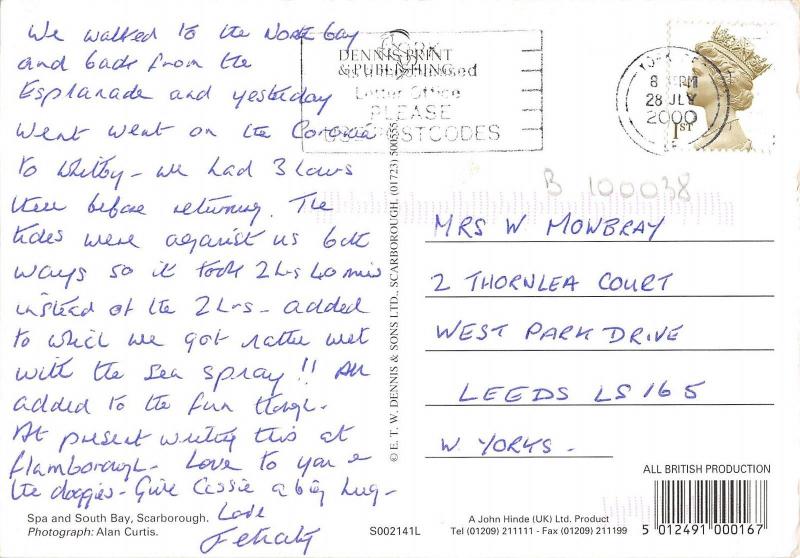 We walked to the North Bay
and back from the
Esplanade and yesterday
went went on the Coronia
to Whitby - we had 3 hours
there before returning. The
tides were against us both
ways so it took 2 hrs 40 mins
instead of the 2 hrs - added
to which we got rather wet
with the sea spray!! All
added to the fun though.
At present writing this at
Flamborough. Love to you &
the doggies - Give Cassie a big hug -
Love
Spa and South Bay, Scarborough.
Photograph: Alan Curtis.
S002141L
© E. T. W. DENNIS & SONS LTD., SCARBOROUGH. (01723) 500555
DENNIS PRINT
& PUBLISHING
Letter Office
PLEASE
USE POSTCODES
YORK
8 PM
28 JLY
2000
1ST
B 100038
MRS W MOWBRAY
2 THORNLEA COURT
WEST PARK DRIVE
LEEDS LS16 5
W YORKS.
ALL BRITISH PRODUCTION
A John Hinde (UK) Ltd. Product
Tel (01209) 211111 - Fax (01209) 211199
5 012491 000167